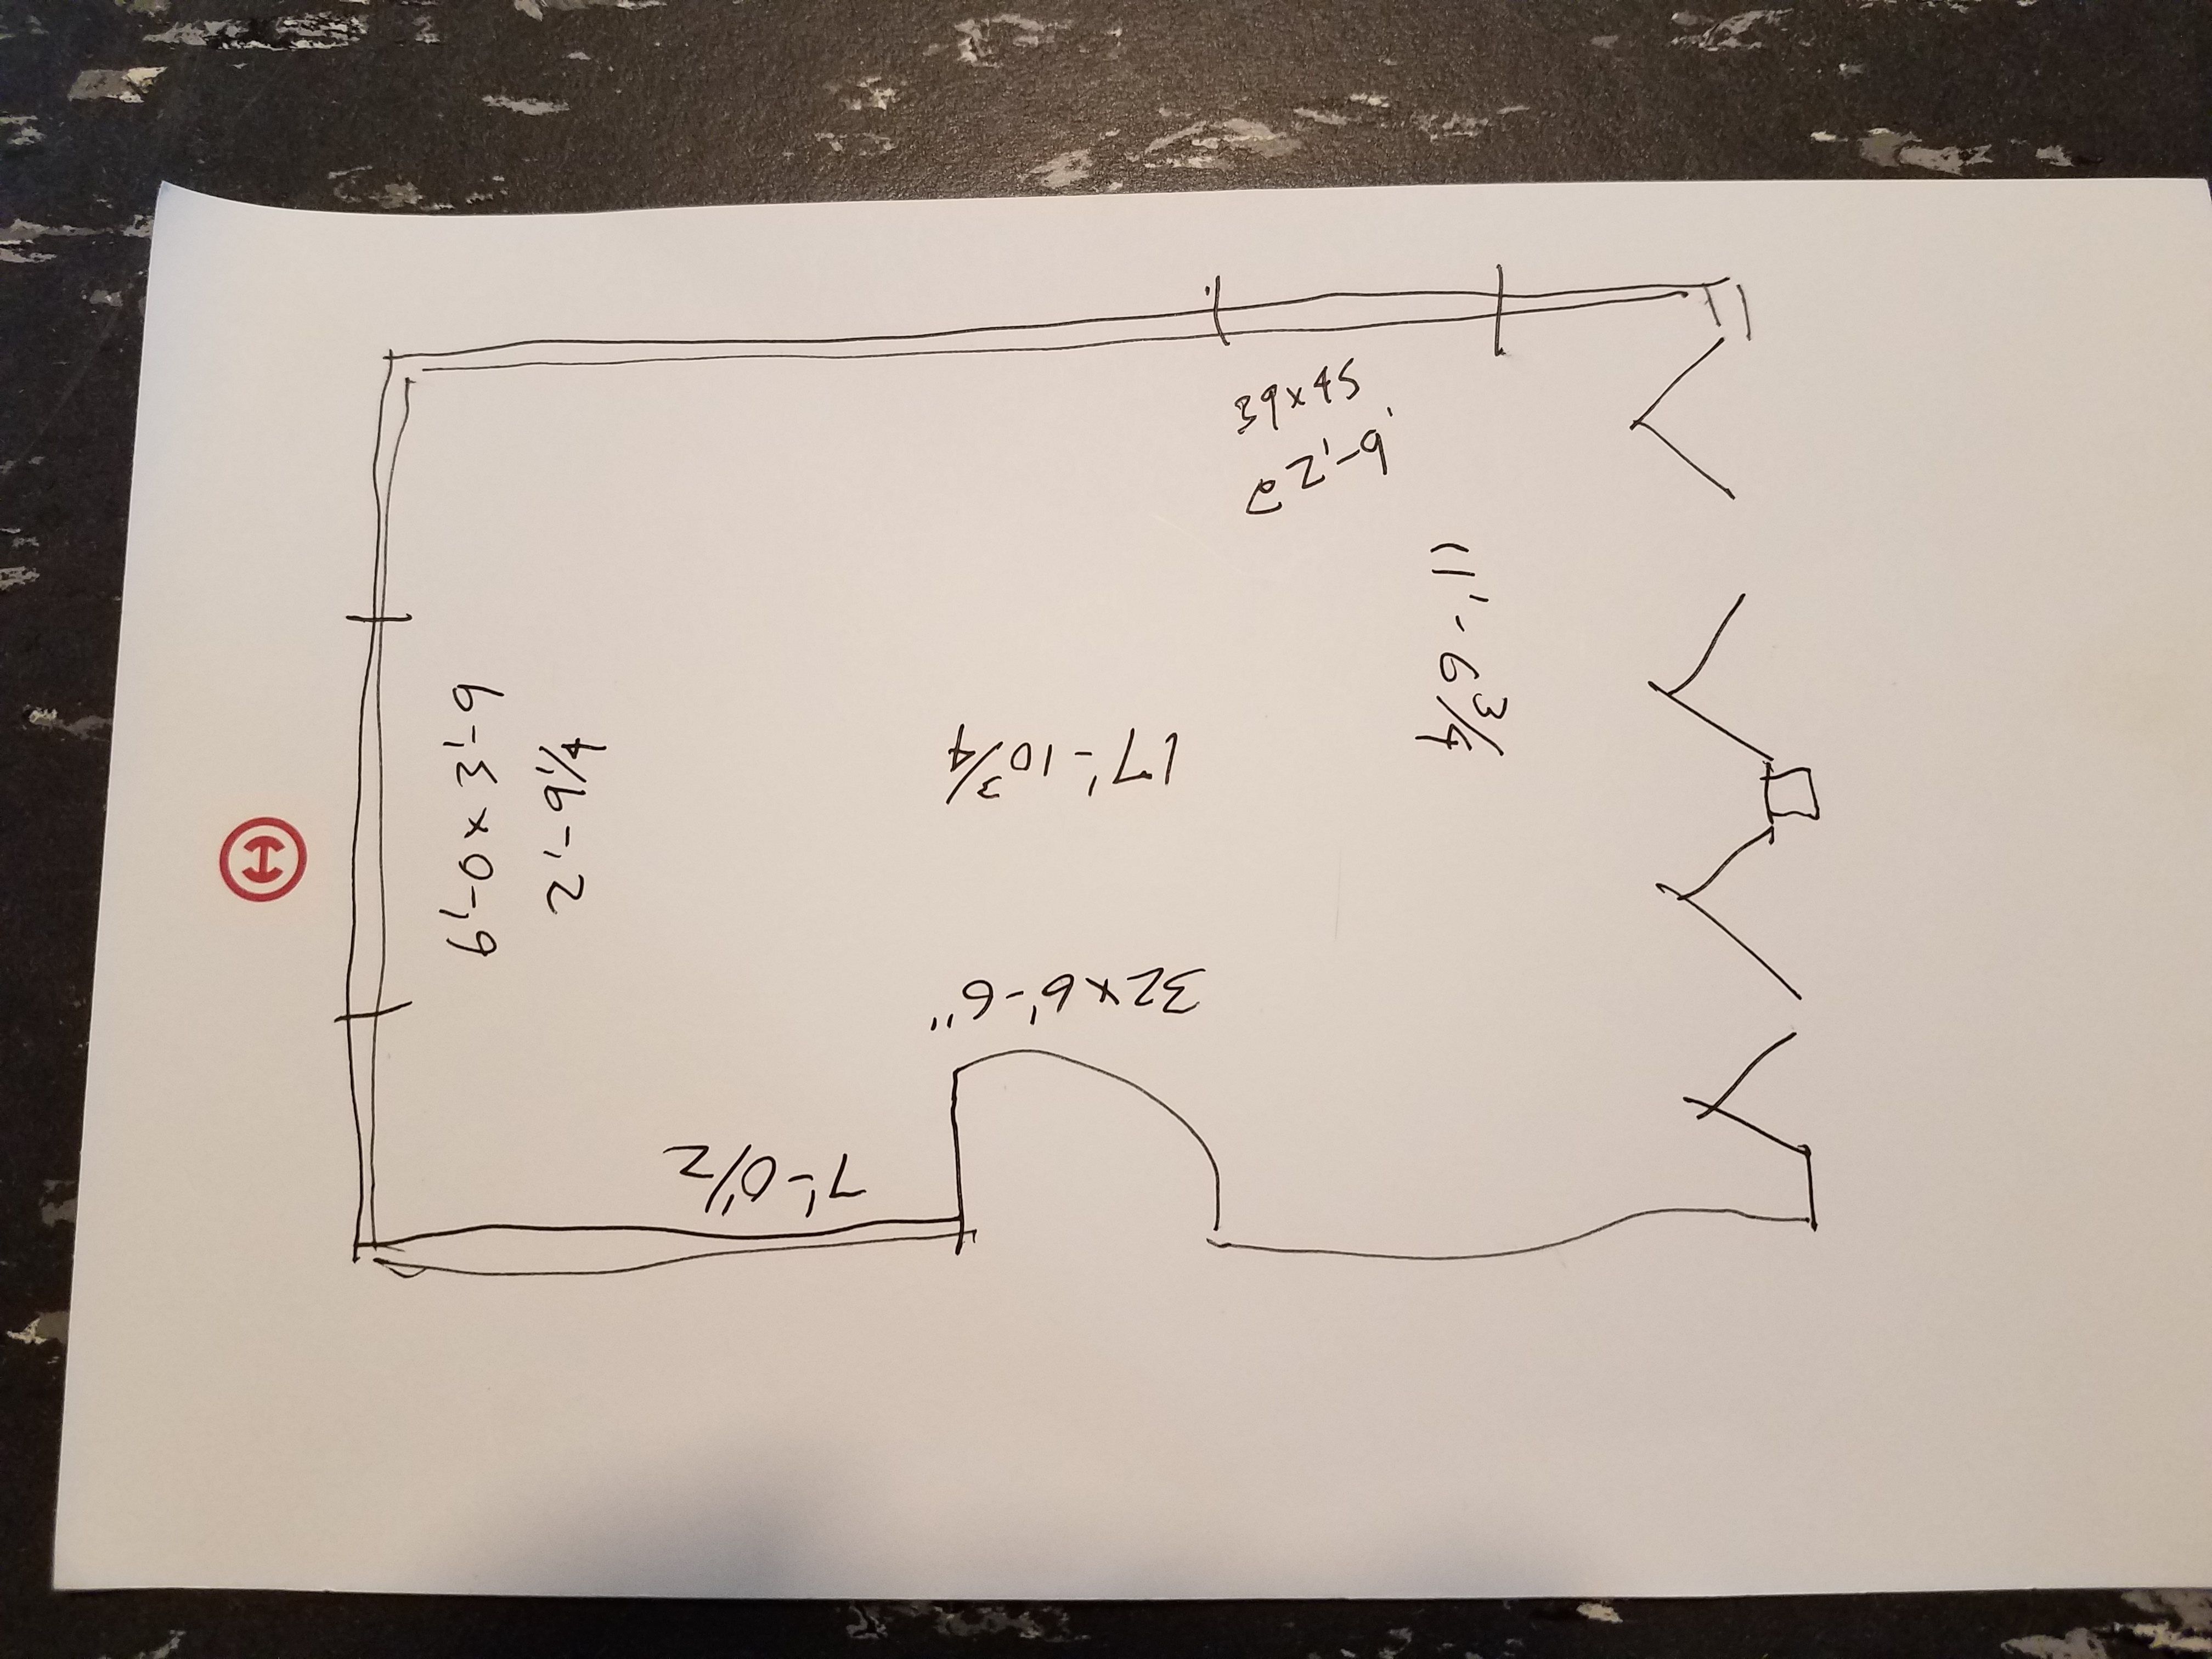 6'-0 x 3'-9
2'-9 1/4
7'-0 1/2
32 x 6'-6"
17'-10 3/4
11'-6 3/4